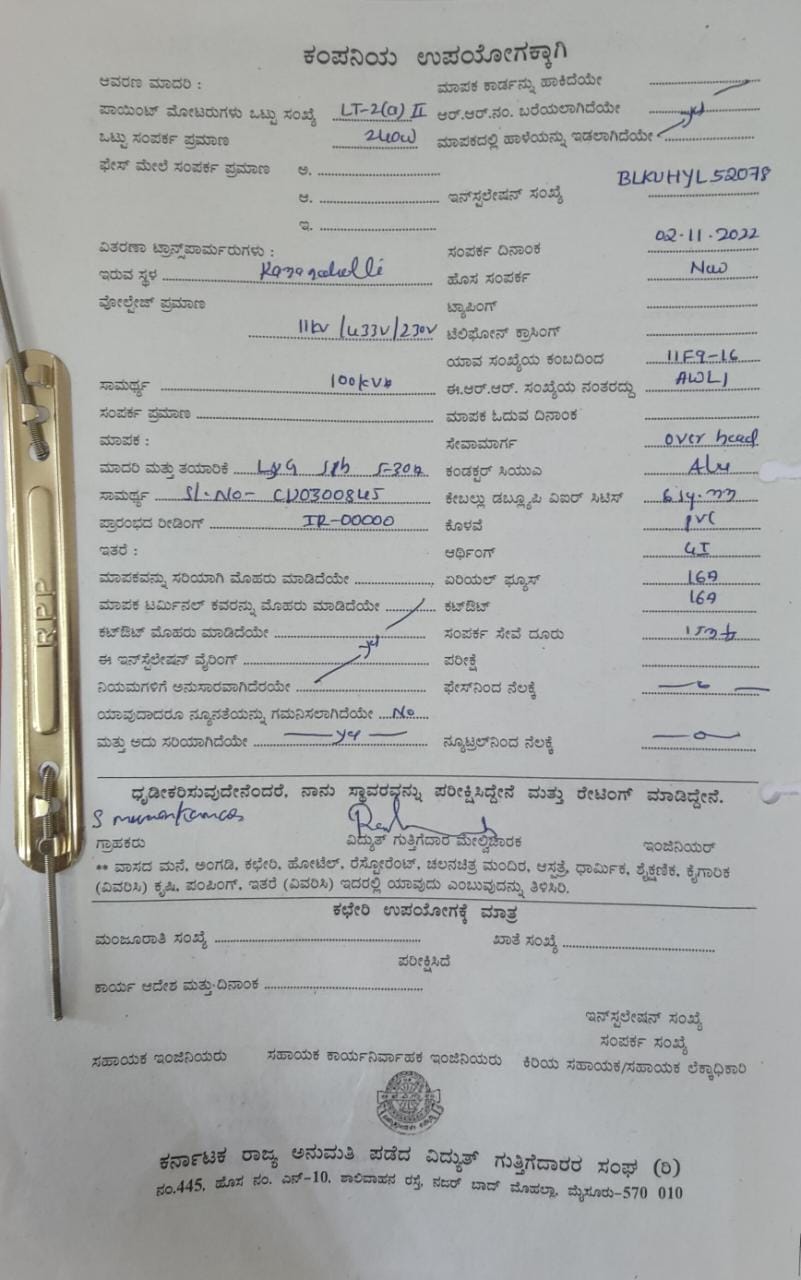 ಕಂಪನಿಯ ಉಪಯೋಗಕ್ಕಾಗಿ
ಆವರಣ ಮಾದರಿ : ಮಾಪಕ ಕಾರ್ಡನ್ನು ಹಾಕಿದೆಯೇ
ಪಾಯಿಂಟ್ ಮೋಟರುಗಳು ಒಟ್ಟು ಸಂಖ್ಯೆ LT-2(a) II ಆರ್.ಆರ್.ನಂ. ಬರೆಯಲಾಗಿದೆಯೇ
ಒಟ್ಟು ಸಂಪರ್ಕ ಪ್ರಮಾಣ 240W ಮಾಪಕದಲ್ಲಿ ಹಾಳೆಯನ್ನು ಇಡಲಾಗಿದೆಯೇ
ಫೇಸ್ ಮೇಲೆ ಸಂಪರ್ಕ ಪ್ರಮಾಣ ಅ.
ಆ. ಇನ್‌ಸ್ಟಲೇಷನ್ ಸಂಖ್ಯೆ BLKUHYL52078
ಇ.
ವಿತರಣಾ ಟ್ರಾನ್ಸ್‌ಪಾರ್ಮರುಗಳು : ಸಂಪರ್ಕ ದಿನಾಂಕ 02.11.2022
ಇರುವ ಸ್ಥಳ ಹೊಸ ಸಂಪರ್ಕ New
ವೋಲ್ಟೇಜ್ ಪ್ರಮಾಣ ಟ್ಯಾಪಿಂಗ್
11kV/433V/230V ಟೆಲಿಫೋನ್ ಕ್ರಾಸಿಂಗ್
ಯಾವ ಸಂಖ್ಯೆಯ ಕಂಬದಿಂದ 11F9-16
ಸಾಮರ್ಥ್ಯ 100kVA ಈ.ಆರ್.ಆರ್. ಸಂಖ್ಯೆಯ ನಂತರದ್ದು AWL1
ಸಂಪರ್ಕ ಪ್ರಮಾಣ ಮಾಪಕ ಓದುವ ದಿನಾಂಕ
ಮಾಪಕ : ಸೇವಾಮಾರ್ಗ over head
ಮಾದರಿ ಮತ್ತು ತಯಾರಿಕೆ L&G 5-30A ಕಂಡಕ್ಟರ್ ಸಿಯುಎ
ಸಾಮರ್ಥ್ಯ Sl.No- CV0300845 ಕೇಬಲ್ಲು ಡಬ್ಲ್ಯೂಪಿ ವಿಐರ್ ಸಿಟಿಸ್
ಪ್ರಾರಂಭದ ರೀಡಿಂಗ್ IR-00000 ಕೊಳವೆ PVC
ಇತರೆ : ಆರ್ಥಿಂಗ್ GI
ಮಾಪಕವನ್ನು ಸರಿಯಾಗಿ ಮೊಹರು ಮಾಡಿದೆಯೇ ಏರಿಯಲ್ ಫ್ಯೂಸ್ 16A
ಮಾಪಕ ಟರ್ಮಿನಲ್ ಕವರನ್ನು ಮೊಹರು ಮಾಡಿದೆಯೇ ಕಟ್‌ಔಟ್ 16A
ಕಟ್‌ಔಟ್ ಮೊಹರು ಮಾಡಿದೆಯೇ ಸಂಪರ್ಕ ಸೇವೆ ದೂರು
ಈ ಇನ್‌ಸ್ಟೆಲೇಷನ್ ವೈರಿಂಗ್ ಪರೀಕ್ಷೆ
ನಿಯಮಗಳಿಗೆ ಅನುಸಾರವಾಗಿದೆರಯೇ ಫೇಸ್‌ನಿಂದ ನೆಲಕ್ಕೆ
ಯಾವುದಾದರೂ ನ್ಯೂನತೆಯನ್ನು ಗಮನಿಸಲಾಗಿದೆಯೇ No
ಮತ್ತು ಅದು ಸರಿಯಾಗಿದೆಯೇ ನ್ಯೂಟ್ರಲ್‌ನಿಂದ ನೆಲಕ್ಕೆ
ಧೃಡೀಕರಿಸುವುದೇನೆಂದರೆ, ನಾನು ಸ್ಥಾವರವನ್ನು ಪರೀಕ್ಷಿಸಿದ್ದೇನೆ ಮತ್ತು ರೇಟಿಂಗ್ ಮಾಡಿದ್ದೇನೆ.
ಗ್ರಾಹಕರು ವಿದ್ಯುತ್ ಗುತ್ತಿಗೆದಾರ ಮೇಲ್ವಿಚಾರಕ ಇಂಜಿನಿಯರ್
** ವಾಸದ ಮನೆ, ಅಂಗಡಿ, ಕಛೇರಿ, ಹೋಟೆಲ್, ರೆಸ್ಟೋರೆಂಟ್, ಚಲನಚಿತ್ರ ಮಂದಿರ, ಆಸ್ಪತ್ರೆ, ಧಾರ್ಮಿಕ, ಶೈಕ್ಷಣಿಕ, ಕೈಗಾರಿಕ
(ವಿವರಿಸಿ) ಕೃಷಿ, ಪಂಪಿಂಗ್, ಇತರೆ (ವಿವರಿಸಿ) ಇದರಲ್ಲಿ ಯಾವುದು ಎಂಬುವುದನ್ನು ತಿಳಿಸಿರಿ.
ಕಛೇರಿ ಉಪಯೋಗಕ್ಕೆ ಮಾತ್ರ
ಮಂಜೂರಾತಿ ಸಂಖ್ಯೆ ಖಾತೆ ಸಂಖ್ಯೆ
ಪರೀಕ್ಷಿಸಿದೆ
ಕಾರ್ಯ ಆದೇಶ ಮತ್ತು ದಿನಾಂಕ
ಇನ್‌ಸ್ಟಲೇಷನ್ ಸಂಖ್ಯೆ
ಸಂಪರ್ಕ ಸಂಖ್ಯೆ
ಸಹಾಯಕ ಇಂಜಿನಿಯರು ಸಹಾಯಕ ಕಾರ್ಯನಿರ್ವಾಹಕ ಇಂಜಿನಿಯರು ಕಿರಿಯ ಸಹಾಯಕ/ಸಹಾಯಕ ಲೆಕ್ಕಾಧಿಕಾರಿ
ಕರ್ನಾಟಕ ರಾಜ್ಯ ಅನುಮತಿ ಪಡೆದ ವಿದ್ಯುತ್ ಗುತ್ತಿಗೆದಾರರ ಸಂಘ (ರಿ)
ನಂ.445, ಹೊಸ ನಂ. ಎನ್-10, ಶಾಲಿವಾಹನ ರಸ್ತೆ, ನಜರ್ ಬಾದ್ ಮೊಹಲ್ಲಾ, ಮೈಸೂರು-570 010
RPP